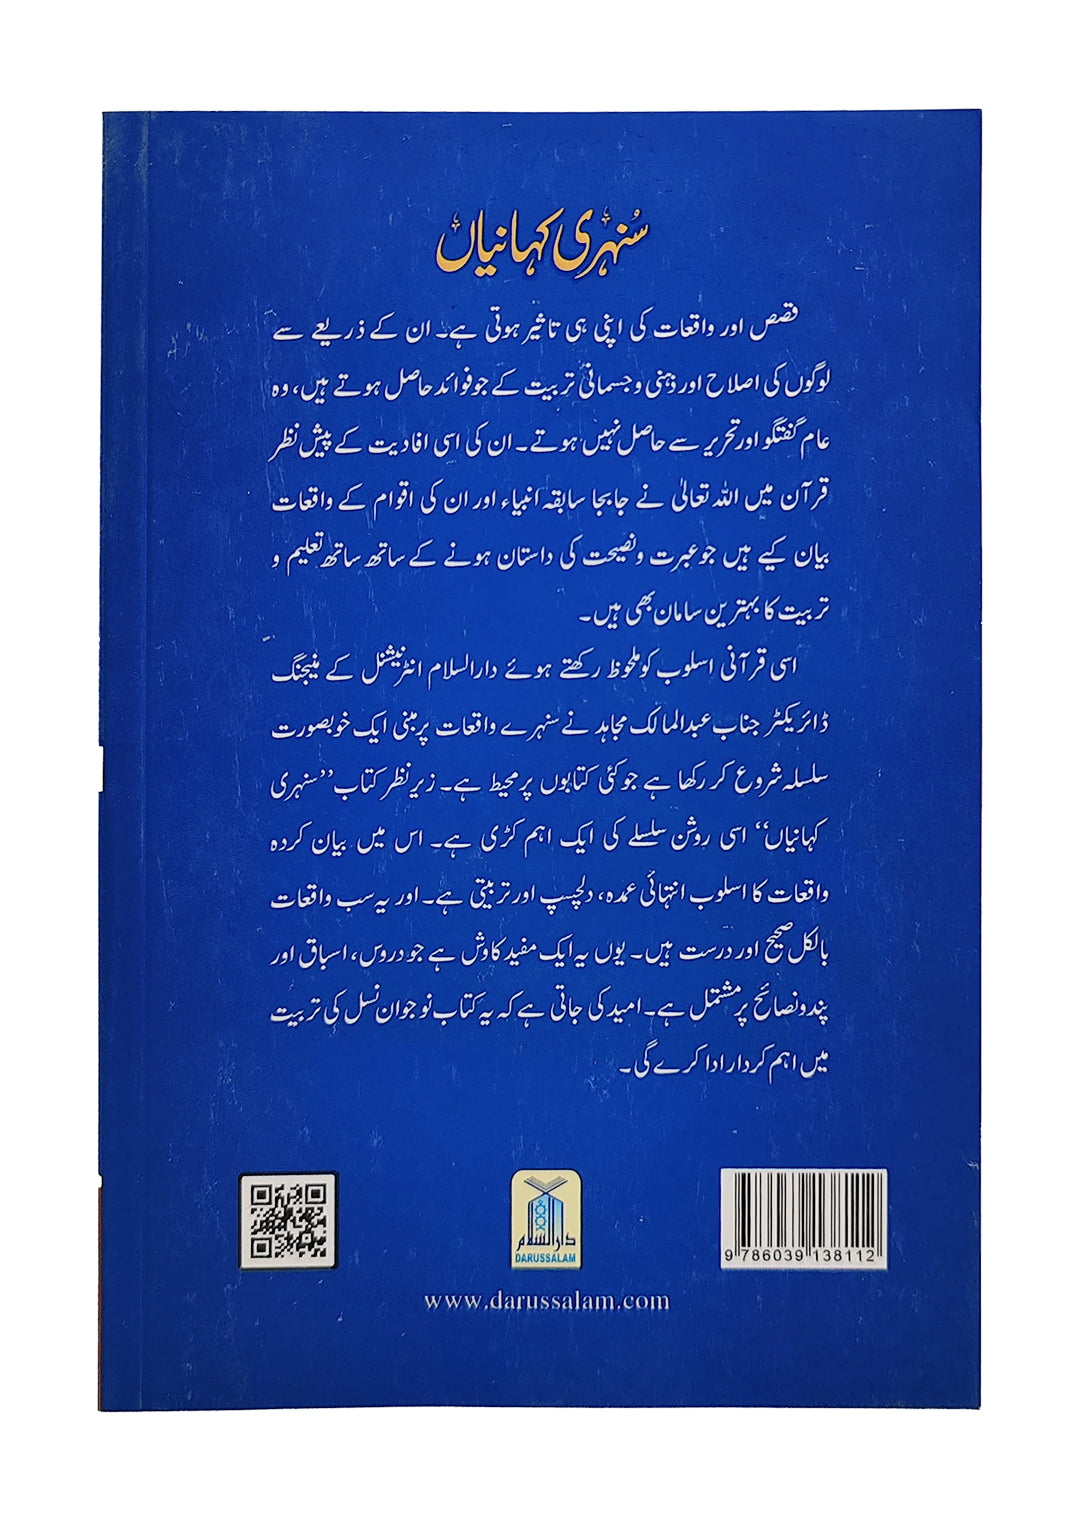 سُنہری کہانیاں
قصص اور واقعات کی اپنی ہی تاثیر ہوتی ہے۔ ان کے ذریعے سے
لوگوں کی اصلاح اور ذہنی و جسمانی تربیت کے جو فوائد حاصل ہوتے ہیں، وہ
عام گفتگو اور تحریر سے حاصل نہیں ہوتے۔ ان کی اسی افادیت کے پیش نظر
قرآن میں اللہ تعالیٰ نے جابجا سابقہ انبیاء اور ان کی اقوام کے واقعات
بیان کیے ہیں جو عبرت و نصیحت کی داستان ہونے کے ساتھ ساتھ تعلیم و
تربیت کا بہترین سامان بھی ہیں۔
اسی قرآنی اسلوب کو ملحوظ رکھتے ہوئے دارالسلام انٹرنیشنل کے منیجنگ
ڈائریکٹر جناب عبدالمالک مجاہد نے سنہرے واقعات پر مبنی ایک خوبصورت
سلسلہ شروع کر رکھا ہے جو کئی کتابوں پر محیط ہے۔ زیر نظر کتاب ’’سنہری
کہانیاں‘‘ اسی روشن سلسلے کی ایک اہم کڑی ہے۔ اس میں بیان کردہ
واقعات کا اسلوب انتہائی عمدہ، دلچسپ اور تربیتی ہے۔ اور یہ سب واقعات
بالکل صحیح اور درست ہیں۔ یوں یہ ایک مفید کاوش ہے جو دروس، اسباق اور
پندونصائح پر مشتمل ہے۔ امید کی جاتی ہے کہ یہ کتاب نوجوان نسل کی تربیت
میں اہم کردار ادا کرے گی۔
دارالسلام
DARUSSALAM
9 786039 138112
www.darussalam.com